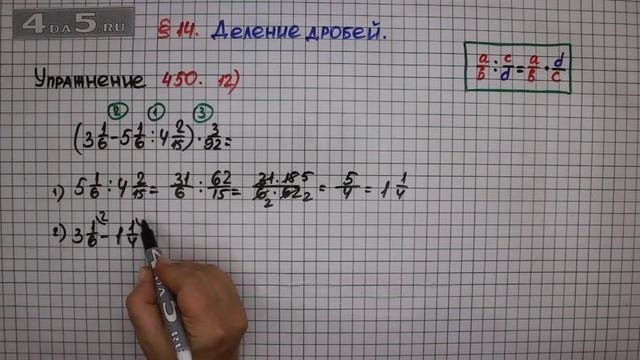 4DA5.RU
§ 14. Деление дробей.
a/b : c/d = a/b · d/c
Упражнение 450. 12)
2 1 3
(3 1/6 - 5 1/6 : 4 2/15) · 3/92 =
1) 5 1/6 : 4 2/15 = 31/6 : 62/15 = 31 · 15 5 / 6 2 · 62 2 = 5/4 = 1 1/4
2) 3 1/6 2 - 1 1/4
5
.RU